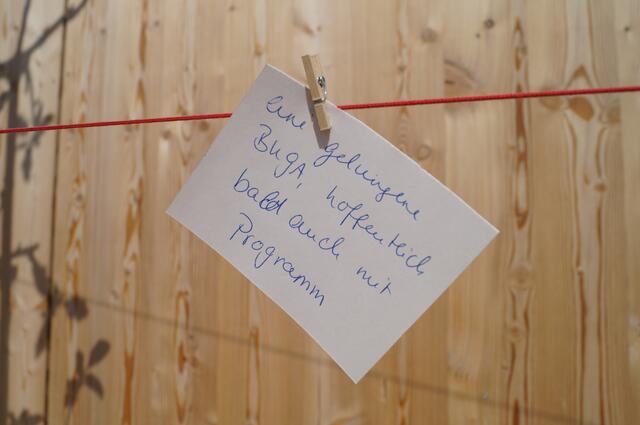 eine gelungene
BUGA, hoffentlich
bald auch mit
Programm